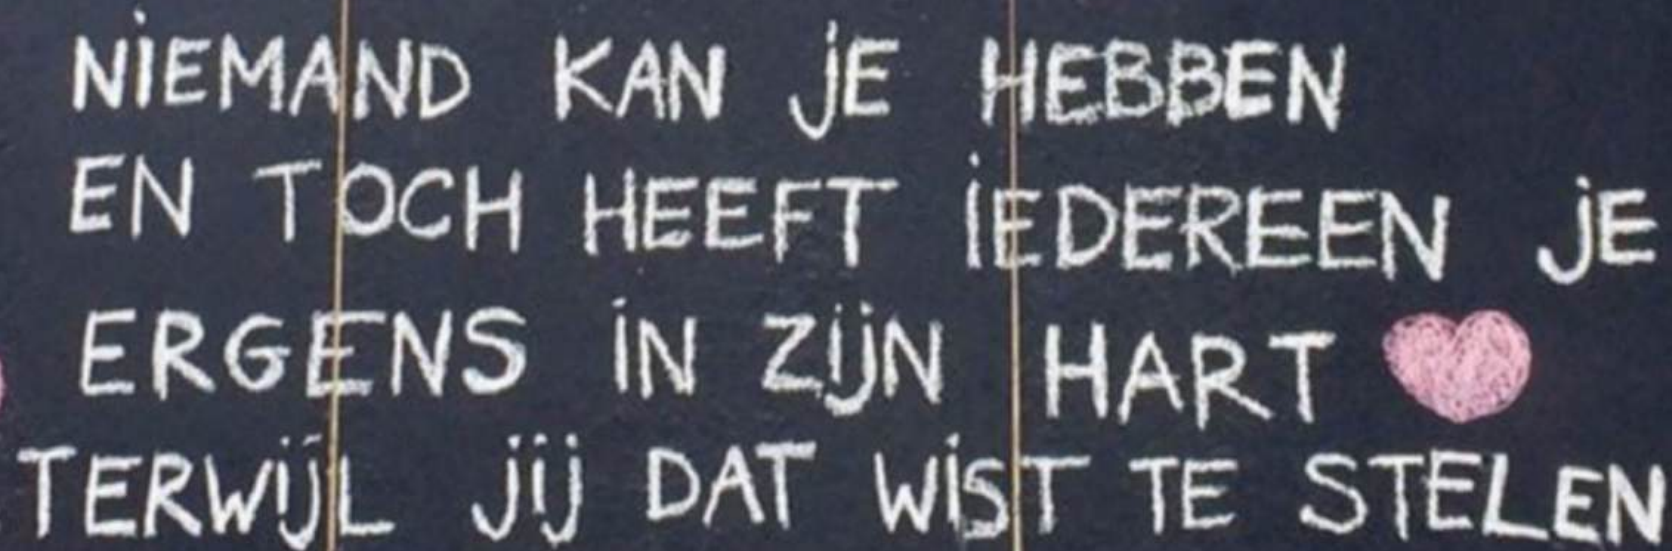 NiEMAND KAN jE HEBBEN
EN TOCH HEEFT iEDEREEN jE
ERGENS iN ZijN HART
TERWijL jij DAT WiST TE STELEN